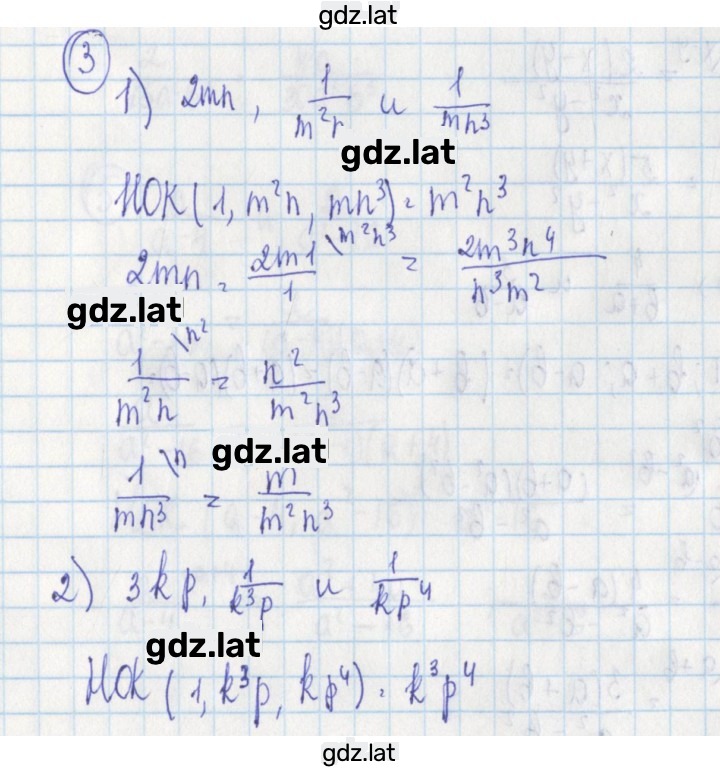 gdz.lat
3
1) 2mn, 1/m²n и 1/mn³
gdz.lat
НОК(1, m²n, mn³) = m²n³
2mn = 2mn/1 \m²n³ = 2m³n⁴/n³m²
gdz.lat
1/m²n \n² = n²/m²n³
gdz.lat
1/mn³ \m = m/m²n³
2) 3kp, 1/k³p и 1/kp⁴
gdz.lat
НОК(1, k³p, kp⁴) = k³p⁴
gdz.lat